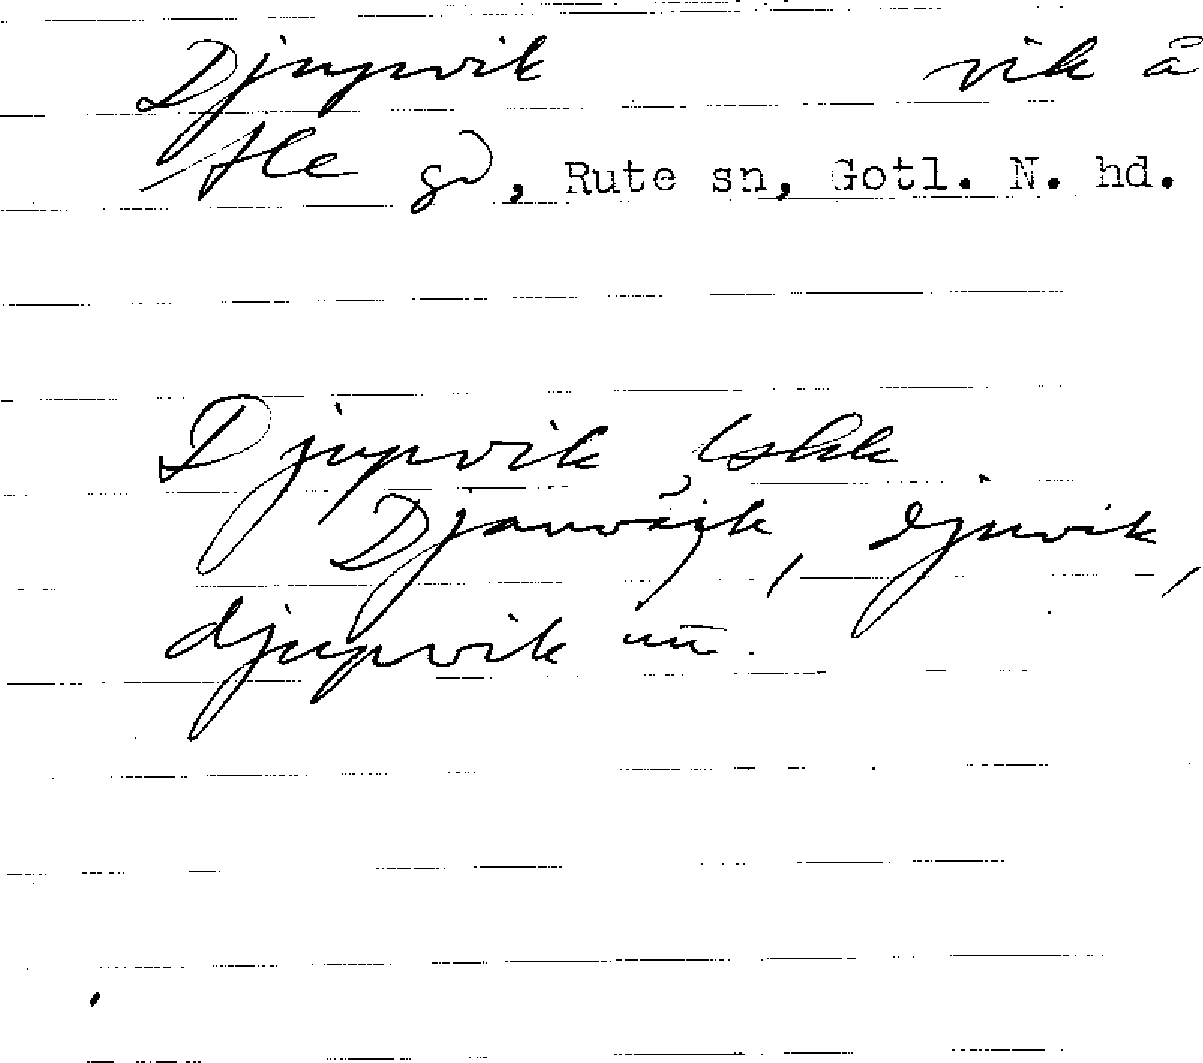 Djupvik vik å
Ale gd, Rute sn, Gotl. N. hd.
Djupvik
Djauväik, djuvik,
djupvik